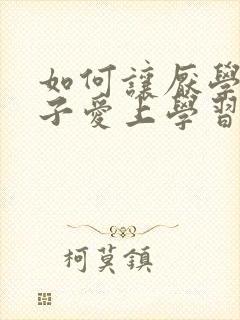 如何讓厭學
子愛上學習
柯莫鎮